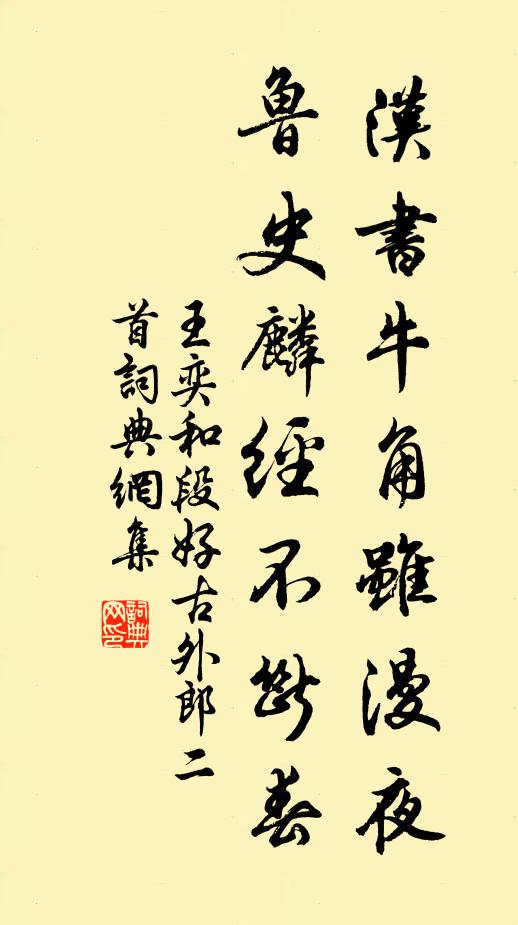 漢書牛角雖漫夜
魯史麟經不斷春
王奕和段好古外郎二
首詞典網集
詞典網印